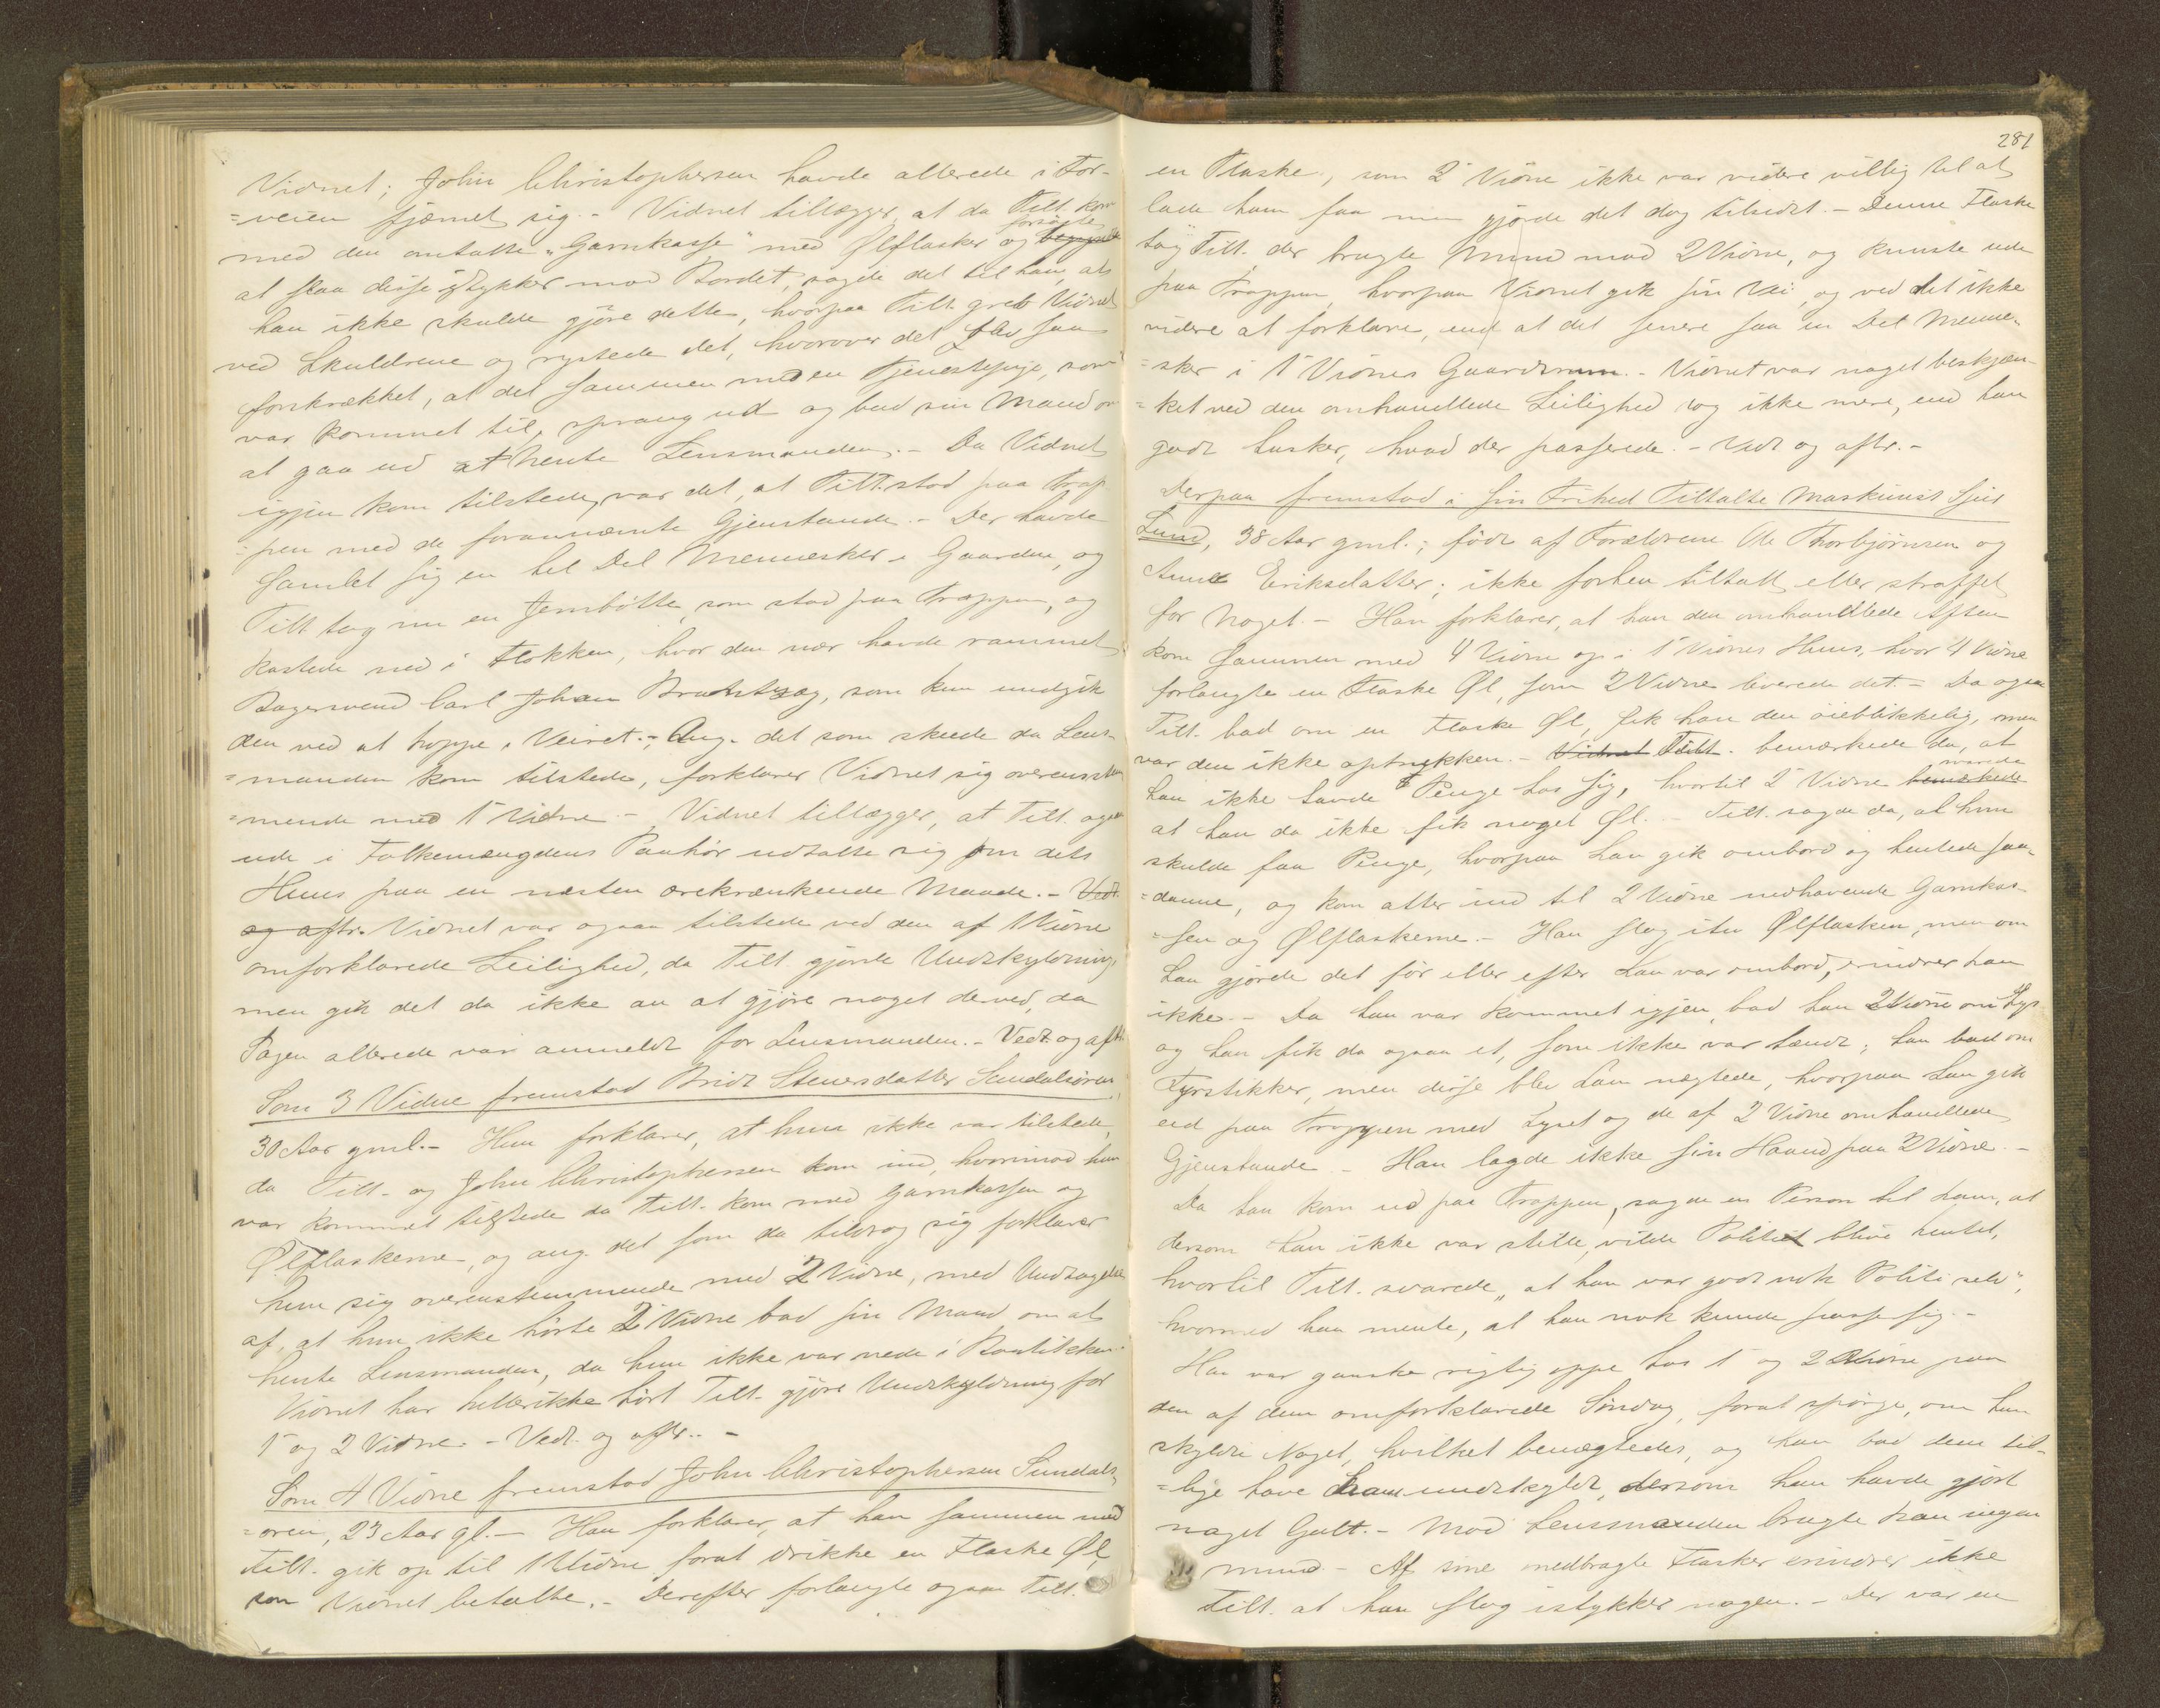 Vidnet; John Christophersen havde allerede i For-
=veien fjærnet sig. - Vidnet tillægger, at da Tilt. kom
med den omtalte „Garnkasse" med Ølflasker og forsøgte
at slaa disse istykker mod Bordet, sagde det til ham, at
han ikke skulde gjøre dette, hvorpaa Tilt. greb Vidnet
ved Skuldrene og rystede det, hvorover det blev saa
forskrækket, at det sammen med en Tjenestepige, som
var kommet til, sprang ud og bad sin Mand om
at gaa ud at hente Lensmanden. - Da Vidnet
igjen kom tilstede, var det, at Tilt. stod paa Trap-
=pen med de forannævnte Gjenstande. - Der havde
samlet sig en hel Del Mennesker i Gaarden, og
Tilt. tog nu en Jernbøtte, som stod paa Trappen, og
kastede ned i Flokken, hvor den nær havde rammet
Bagersvend Carl Johan, som kun undgik
den ved at hoppe i Veiret. - Ang. det som skede da Lens-
=manden kom tilstede, forklarer Vidnet sig overensstem-
=mende med 1' Vidne. - Vidnet tillægger, at Tilt. ogsaa
ude i Folkemængdens Paahør udtalte sig om dets
Huus paa en næsten ærekrænkende Maade. - Vedt.
og aftr. Vidnet var ogsaa tilstede ved den af 1 Vidne
omforklarede Leilighed, da Tilt. gjorde Undskyldning,
men gik det da ikke an at gjøre noget derved, da
Sagen allerede var anmeldt for Lensmanden. - Vedt. og aftr.
Som 3 Vidne fremstod Brit Stenersdatter Sundalsøren,
30 Aar gml. - Hun forklarer, at hun ikke var tilstede,
da Tilt. og John Christophersen kom ind, hvorimod hun
var kommet tilstede da Tilt. kom med Garnkassen og
Ølflaskerne, og ang. det som da tildrog sig forklarer
hun sig overensstemmende med 2 Vidne, med Undtagelse
af, at hun ikke hørte 2' Vidne bad sin Mand om at
hente Lensmanden, da hun ikke var nede i Boutikken.
Vidnet har heller ikke hørt Tilt. gjøre Undskyldning for
1' og 2 Vidne. - Vedt. og aftr. -
Som 4 Vidne fremstod John Christophersen Sundals-
=øren, 23 Aar gl. - Han forklarer, at han sammen med
Tilt. gik op til 1 Vidne forat drikke en Flaske Øl,
som Vidnet betalte. - Derefter forlangte ogsaa Tilt.
281
en Flaske, som 2' Vidne ikke var videre villig til at
lade ham faa men gjorde det dog tilsidst. - Denne Flaske
tog Tilt. der brugte Mund mod 2 Vidne, og knuste ude
paa Trappen, hvorpaa Vidnet gik sin Vei, og ved det ikke
videre at forklare, end at det senere saa en Del Menne-
=sker i 1' Vidnes Gaardsrum. - Vidnet var noget beskjæn-
=ket ved den omhandlede Leilighed og ikke mere, end han
godt husker, hvad der passerede. - Vedt og aftr. -
Derpaa fremstod i sin Frihed Tiltalte Maskinist Sjur
Lund, 38 Aar gml.; født af Forældrene Ole Thorbjørnsen og
Anne Eriksdatter; ikke forhen tiltalt eller straffet
for Noget. - Han forklarer, at han den omhandlede Aften
kom sammen med 4 Vidne op i 1' Vidnes Huus, hvor 4 Vidne
forlangte en Flaske Øl, som 2 Vidne leverede det. - Da ogsaa
Tilt. bad om en Flaske Øl, fik han den øieblikkelig, men
var den ikke optrukken. - Vidnet Tilt. bemærkede da, at
han ikke havde Penge hos sig, hvortil 2' Vidne bemærkede svarede
at han da ikke fik noget Øl. - Tilt. sagde da, at hun
skulde faa Penge, hvorpaa han gik ombord og hentede saa-
=danne, og kom atter ind til 2 Vidne medhavende Garnkas-
=sen og Ølflaskerne. - Han slog itu Ølflasken, men om
han gjorde det før eller efter han var ombord, erindrer han
ikke. - Da han var kommet igjen, bad han 2 Vidne om Lys
og han fik da ogsaa et, som ikke var tændt; han bad om
Fyrstikker, men disse blev ham nægtede, hvorpaa han gik
ud paa Trappen med Lyset og de af 2 Vidne omhandlede
Gjenstande. - Han lagde ikke sin Haand paa 2 Vidne. -
Da han kom ud paa Trappen, sagde en Person til ham, at
dersom han ikke var stille, vilde Politiet blive hentet,
hvortil Tilt. svarede „at han var godt nok Politi selv",
hvormed han mente, at han nok kunde passe sig. -
Han var ganske rigtig oppe hos 1' og 2 Vidne paa
den af dem omforklarede Søndag, forat spørge, om han
skyldte Noget, hvilket benægtedes, og han bad dem til-
=lige have ham undskyldt, dersom han havde gjort
noget Galt. - Mod Lensmanden brugte han ingen
Mund. - Af sine medbragte Flasker erindrer ikke
Tilt. at han slog istykker nogen. - Der var en